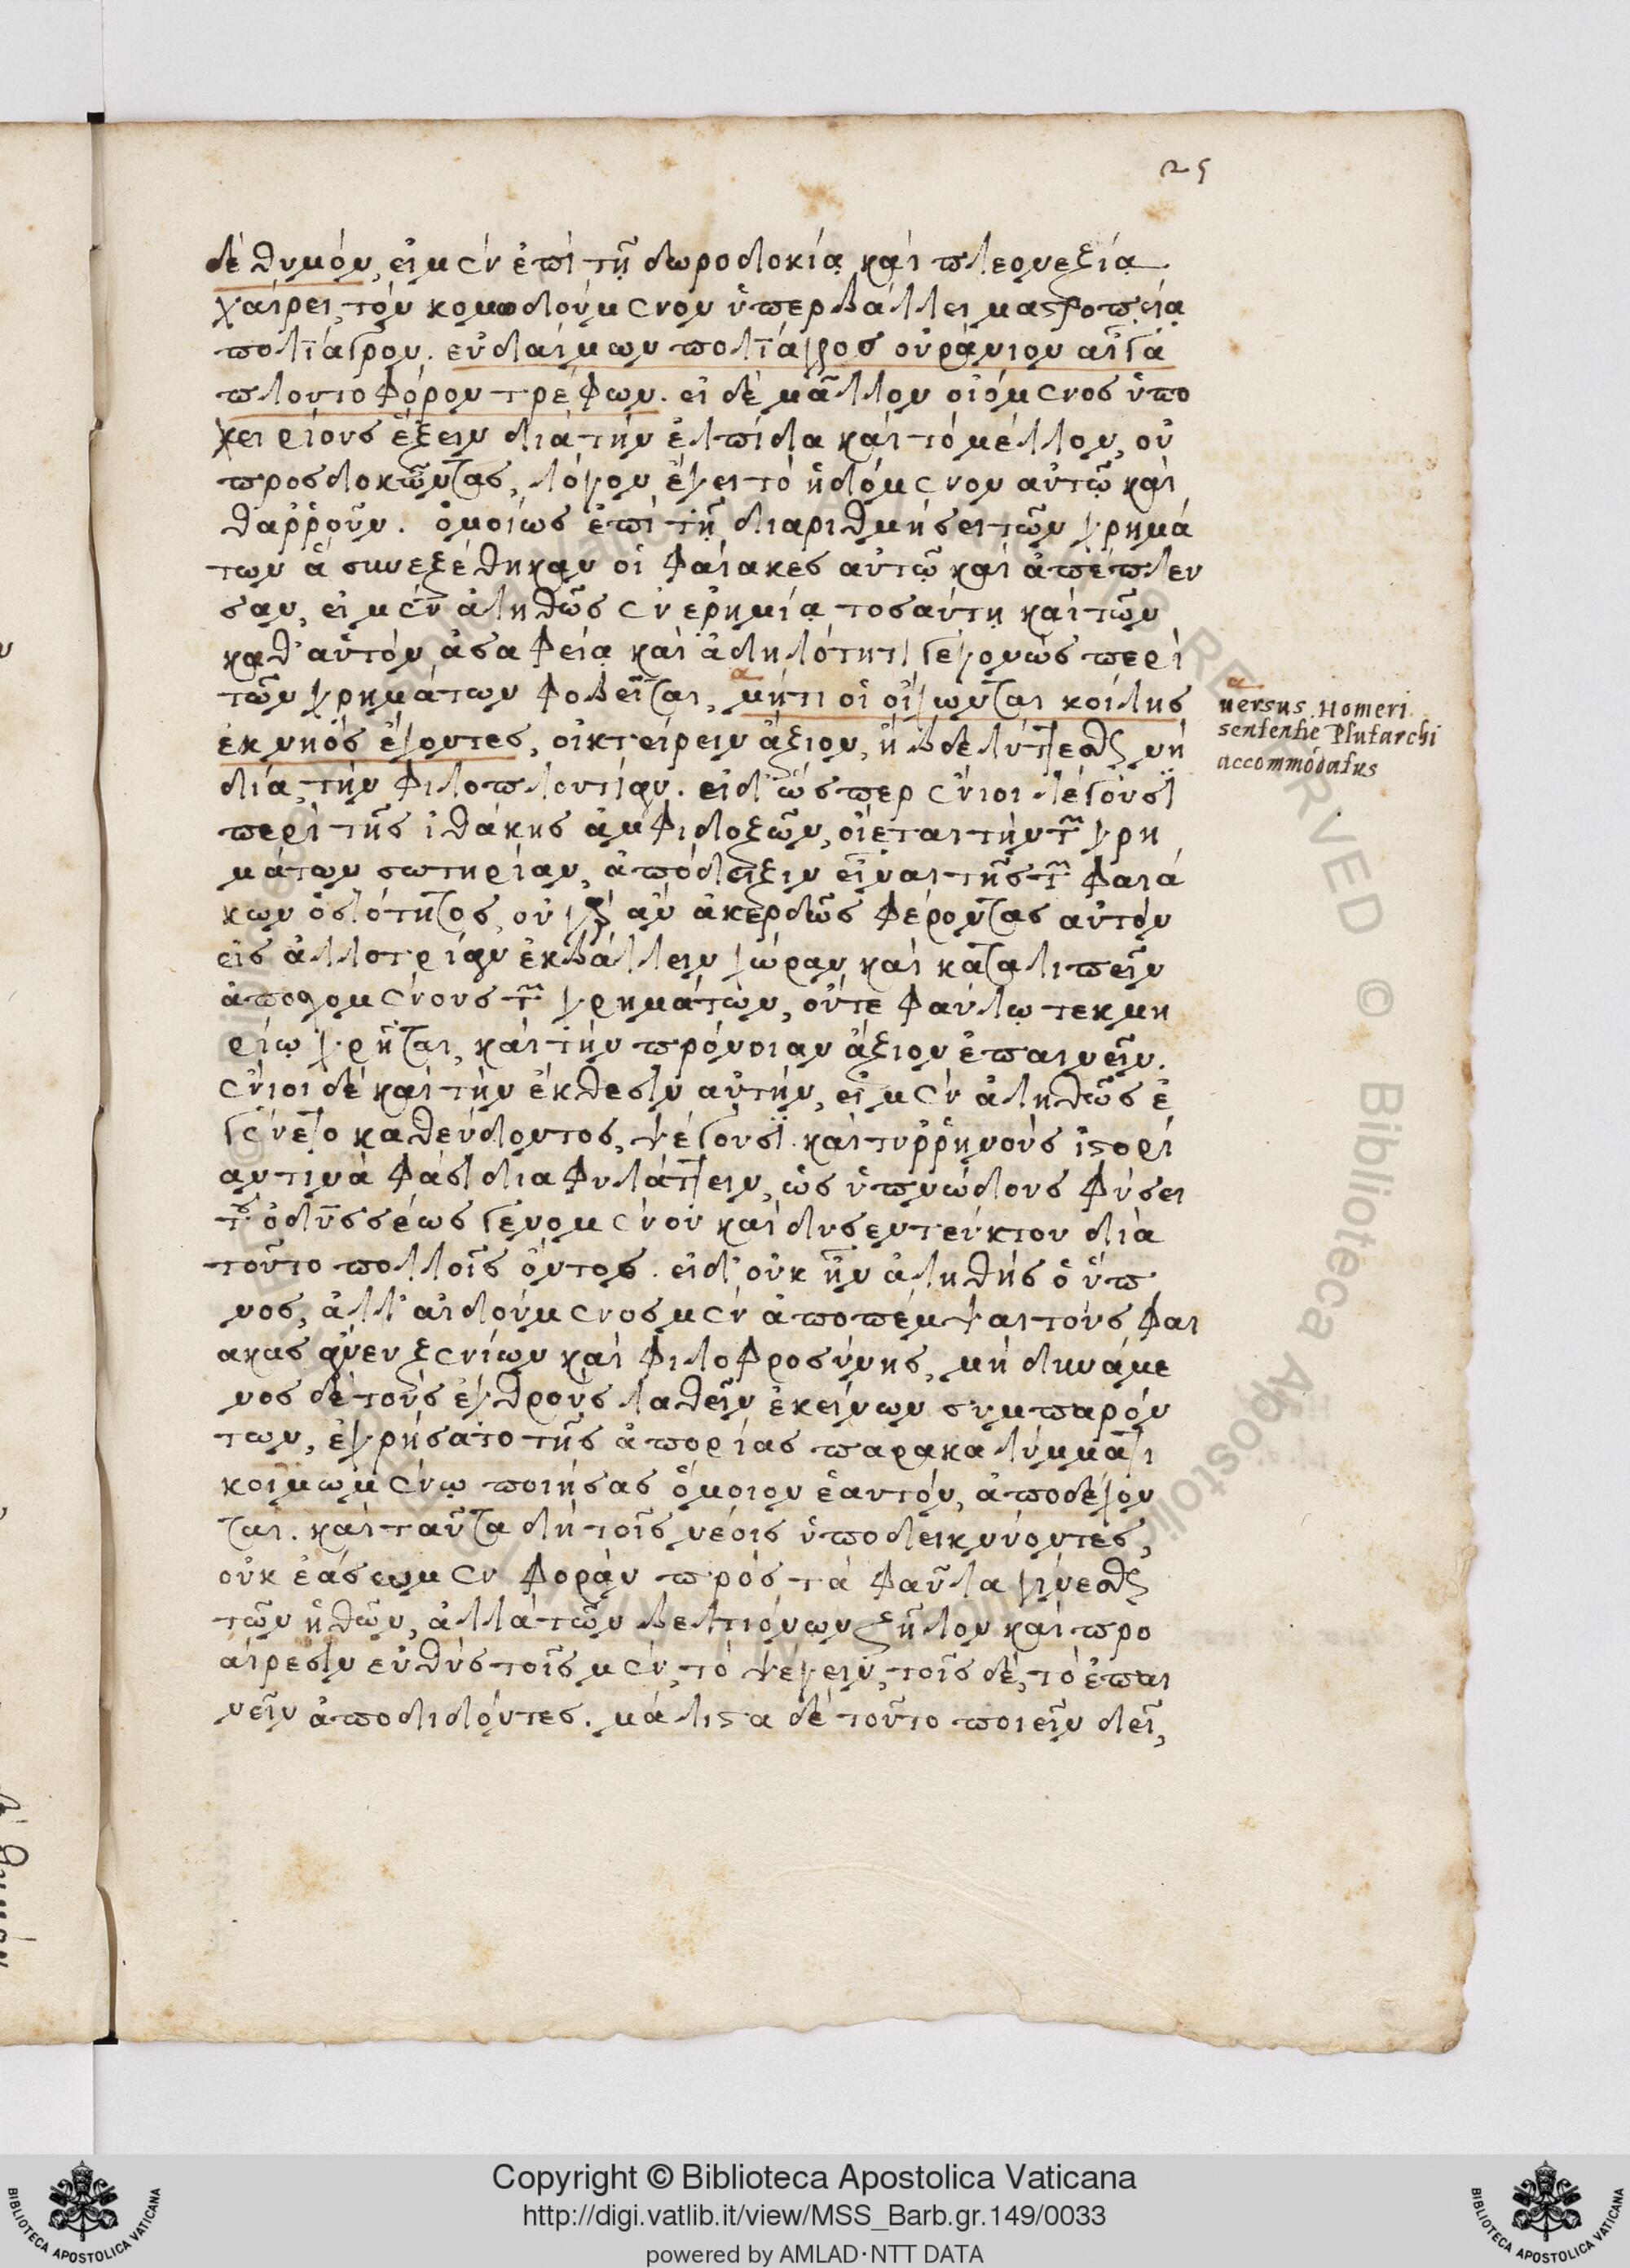 25
δὲ θυμόν, εἰ μὲν ἐπὶ τῇ δωροδοκίᾳ καὶ πλεονεξίᾳ
χαίρει, τὸν κομωδούμενον ὑπερβάλλει μαστροπείᾳ
πολίαγρον. εὐδαίμων πολίαγρος οὐράνιον αἶγα
πλουτοφόρον τρέφων. εἰ δὲ μᾶλλον οἰόμενος ὑπο
χειρίους ἕξειν διὰ τὴν ἐλπίδα καὶ τὸ μέλλον, οὐ
προσδοκῶντας, λόγον ἔχει τὸ ἡδόμενον αὐτῷ καὶ
θαῤῥοῦν. ὁμοίως ἐπὶ τῇ διαριθμήσει τῶν χρημά
των ἃ συνεξέθηκαν οἱ Φαίακες αὐτῷ καὶ ἀπέπλευ
σαν, εἰ μὲν ἀληθῶς ἐν ἐρημίᾳ τοσαύτῃ καὶ τῶν
καθ' αὑτὸν ἀσαφείᾳ καὶ ἀδηλότητι γεγονὼς περὶ
τῶν χρημάτων φοβεῖται, μή τι οἱ οἴχωνται κοίλης
ἐκ νηὸς ἔχοντες, οἰκτείρειν ἄξιον, ἢ βδελύττεσθαι νὴ
δία, τὴν φιλοπλουτίαν. εἰ δ' ὥσπερ ἔνιοι λέγουσι
περὶ τῆς ἰθάκης ἀμφιδοξῶν, οἴεται τὴν τῶν χρη
μάτων σωτηρίαν, ἀπόδειξιν εἶναι τῆς τῶν Φαιά
κων ὁσιότητος, οὐ γὰρ ἂν ἀκερδῶς φέροντας αὐτὸν
εἰς ἀλλοτρίαν ἐκβάλλειν χώραν καὶ καταλιπεῖν
ἀποσχομένους τῶν χρημάτων, οὔτε φαύλῳ τεκμη
ρίῳ χρῆται, καὶ τὴν πρόνοιαν ἄξιον ἐπαινεῖν.
ἔνιοι δὲ καὶ τὴν ἔκθεσιν αὐτὴν, εἰ μὲν ἀληθῶς ἐ
γένετο καθεύδοντος, ψέγουσι. καὶ τυῤῥηνοὺς ἱστορί
αν τινὰ φασὶ διαφυλάττειν, ὡς ὑπνώδους φύσει
τοῦ ὀδυσσέως γενομένου καὶ δυσεντεύκτου διὰ
τοῦτο πολλοῖς ὄντος. εἰ δ' οὐκ ἦν ἀληθὴς ὁ ὕπ
νος, ἀλλ' αἰδούμενος μὲν ἀποπέμψαι τοὺς Φαί
ακας ἄνευ ξενίων καὶ φιλοφροσύνης, μὴ δυνάμε
νος δὲ τοὺς ἐχθροὺς λαθεῖν ἐκείνων συμπαρόν
των, ἐχρήσατο τῆς ἀπορίας παρακαλύμματι
κοιμωμένῳ ποιήσας ὅμοιον ἑαυτὸν, ἀποδέχον
ται. καὶ ταῦτα δὴ τοῖς νέοις ὑποδεικνύοντες,
οὐκ ἐάσωμεν φορὰν πρὸς τὰ φαῦλα γίνεσθαι
τῶν ἠθῶν, ἀλλὰ τῶν βελτιόνων ζῆλον καὶ προ
αίρεσιν εὐθὺς τοῖς μὲν, τὸ ψέγειν, τοῖς δὲ, τὸ ἐπαι
νεῖν ἀποδιδόντες. μάλιστα δὲ τοῦτο ποιεῖν δεῖ,
a
a
versus Homeri
sententie Plutarchi
accommodatus
Copyright © Biblioteca Apostolica Vaticana
http://digi.vatlib.it/view/MSS_Barb.gr.149/0033
powered by AMLAD·NTT DATA
BIBLIOTECA APOSTOLICA VATICANA
BIBLIOTECA APOSTOLICA VATICANA